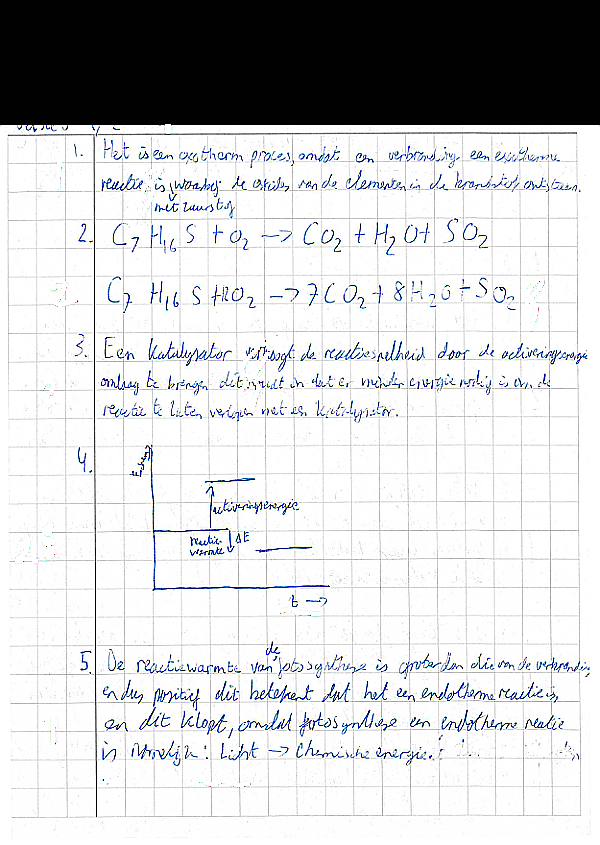 1. Het is een exotherm proces, omdat een verbranding een exotherme
reactie is, waarbij de oxides van de elementen in de brandstof ontstaan.
met zuurstof
2. C₇ H₁₆ S + O₂ –> CO₂ + H₂O + SO₂
C₇ H₁₆ S + 12O₂ –> 7CO₂ + 8H₂O + SO₂
3. Een katalysator verhoogt de reactiesnelheid door de activeringsenergie
omlaag te brengen dit houdt in dat er minder energie nodig is om de
reactie te laten verlopen met een katalysator.
4.
activeringsenergie
reactie-
warmte ΔE
t –>
5. De reactiewarmte van de fotosynthese is groter dan die van de verbranding
en dus positief dit betekent dat het een endotherme reactie is,
en dit klopt, omdat fotosynthese een endotherme reactie
is namelijk: Licht –> Chemische energie.